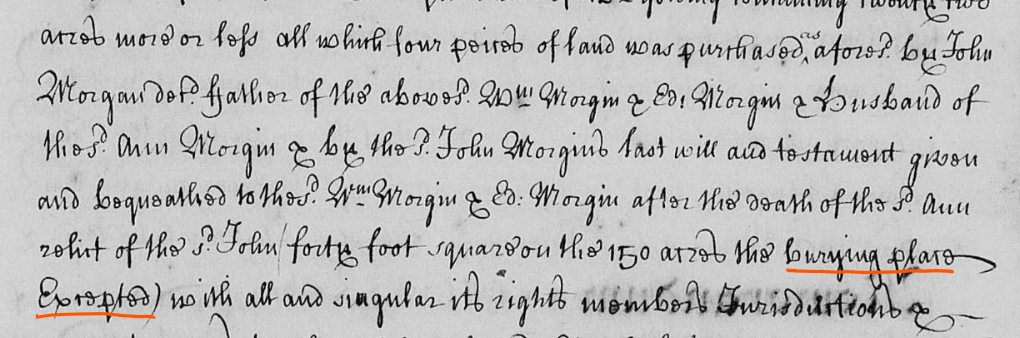 remaining twenty two
acres more or less all which four peices of land was purchased, as afores.d by John
Morgan dec.d ffather of the aboves.d W.m Morgin & Ed: Morgin & Husband of
the s.d Ann Morgin & by the s.d John Morgins last will and testament given
and bequeathed to the s.d W.m Morgin & Ed: Morgin after the death of the s.d Ann
relict of the s.d John (forty foot square on the 150 acres the burying place
Excepted) with all and singular its rights members Jurisdictions &